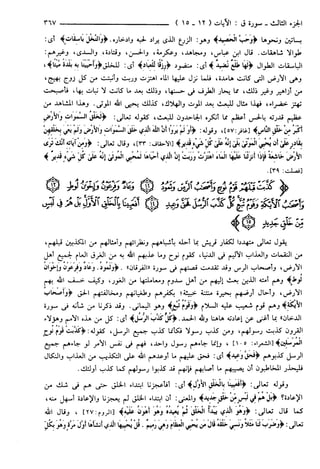 الجزء الثالث - سورة ق : الآيات (١٢ - ١٥) ٣٦٧
بساتين ونحوها ﴿وَحَبَّ الْحَصِيدِ﴾ وهو: الزرع الذي يراد لحبه وادخاره. ﴿وَالنَّخْلَ بَاسِقَاتٍ﴾ أي:
طوالا شاهقات. قال ابن عباس، ومجاهد، وعكرمة، والحسن، وقتادة، والسدي، وغيرهم:
الباسقات الطوال ﴿لَّهَا طَلْعٌ نَّضِيدٌ﴾ أي: منضود ﴿رِّزْقًا لِّلْعِبَادِ﴾ أي: للخلق ﴿وَأَحْيَيْنَا بِهِ بَلْدَةً مَّيْتًا﴾،
وهي الأرض التي كانت هامدة، فلما نزل عليها الماء اهتزت وربت وأنبتت من كل زوج بهيج،
من أزاهير وغير ذلك، مما يحار الطرف في حسنها، وذلك بعد ما كانت لا نبات بها، فأصبحت
تهتز خضراء، فهذا مثال للبعث بعد الموت والهلاك، كذلك يحيي الله الموتى. وهذا المشاهد من
عظيم قدرته بالحس أعظم مما أنكره الجاحدون للبعث، كقوله تعالى: ﴿لَخَلْقُ السَّمَاوَاتِ وَالْأَرْضِ
أَكْبَرُ مِنْ خَلْقِ النَّاسِ﴾ [غافر: ٥٧]، وقوله: ﴿أَوَلَمْ يَرَوْا أَنَّ اللَّهَ الَّذِي خَلَقَ السَّمَاوَاتِ وَالْأَرْضَ وَلَمْ يَعْيَ بِخَلْقِهِنَّ
بِقَادِرٍ عَلَى أَن يُحْيِيَ الْمَوْتَى بَلَى إِنَّهُ عَلَى كُلِّ شَيْءٍ قَدِيرٌ﴾ [الأحقاف: ٣٣]، وقال تعالى: ﴿وَمِنْ آيَاتِهِ أَنَّكَ تَرَى
الْأَرْضَ خَاشِعَةً فَإِذَا أَنزَلْنَا عَلَيْهَا الْمَاءَ اهْتَزَّتْ وَرَبَتْ إِنَّ الَّذِي أَحْيَاهَا لَمُحْيِي الْمَوْتَى إِنَّهُ عَلَى كُلِّ شَيْءٍ قَدِيرٌ﴾
[فصلت: ٣٩].
﴿كَذَّبَتْ قَبْلَهُمْ قَوْمُ نُوحٍ وَأَصْحَابُ الرَّسِّ وَثَمُودُ ۝ وَعَادٌ وَفِرْعَوْنُ وَإِخْوَانُ لُوطٍ ۝
وَأَصْحَابُ الْأَيْكَةِ وَقَوْمُ تُبَّعٍ كُلٌّ كَذَّبَ الرُّسُلَ فَحَقَّ وَعِيدِ ۝ أَفَعَيِينَا بِالْخَلْقِ الْأَوَّلِ بَلْ هُمْ فِي لَبْسٍ
مِّنْ خَلْقٍ جَدِيدٍ ۝﴾
يقول تعالى متهددا لكفار قريش بما أحله بأشباههم ونظرائهم وأمثالهم من المكذبين قبلهم،
من النقمات والعذاب الأليم في الدنيا، كقوم نوح وما عذبهم الله به من الغرق العام لجميع أهل
الأرض، وأصحاب الرس وقد تقدمت قصتهم في سورة "الفرقان" ﴿وَثَمُودُ. وَعَادٌ وَفِرْعَوْنُ وَإِخْوَانُ
لُوطٍ﴾ وهم أمته الذين بعث إليهم من أهل سدوم ومعاملتها من الغور، وكيف خسف الله بهم
الأرض، وأحال أرضهم بحيرة منتنة خبيثة؛ بكفرهم وطغيانهم ومخالفتهم الحق ﴿وَأَصْحَابُ
الْأَيْكَةِ﴾ وهم قوم شعيب عليه السلام ﴿وَقَوْمُ تُبَّعٍ﴾ وهو اليماني. وقد ذكرنا من شأنه في سورة
الدخان" بما أغنى عن إعادته هاهنا ولله الحمد. ﴿كُلٌّ كَذَّبَ الرُّسُلَ﴾ أي: كل من هذه الأمم وهؤلاء
القرون كذبت رسولهم، ومن كذب رسولا فكأنما كذب جميع الرسل، كقوله: ﴿كَذَّبَتْ قَوْمُ نُوحٍ
الْمُرْسَلِينَ﴾ [الشعراء: ١٠٥] ، وإنما جاءهم رسول واحد، فهم في نفس الأمر لو جاءهم جميع
الرسل كذبوهم ﴿فَحَقَّ وَعِيدِ﴾ أي: فحق عليهم ما أوعدهم الله على التكذيب من العذاب والنكال
فليحذر المخاطبون أن يصيبهم ما أصابهم فإنهم قد كذبوا رسولهم كما كذب أولئك.
وقوله تعالى: ﴿أَفَعَيِينَا بِالْخَلْقِ الْأَوَّلِ﴾ أي: أفأعجزنا ابتداء الخلق حتى هم في شك من
الإعادة؟ ﴿بَلْ هُمْ فِي لَبْسٍ مِّنْ خَلْقٍ جَدِيدٍ﴾ والمعنى: أن ابتداء الخلق لم يعجزنا والإعادة أسهل منه،
كما قال تعالى: ﴿وَهُوَ الَّذِي يَبْدَأُ الْخَلْقَ ثُمَّ يُعِيدُهُ وَهُوَ أَهْوَنُ عَلَيْهِ﴾ [الروم: ٢٧] ، وقال الله
تعالى: ﴿وَضَرَبَ لَنَا مَثَلًا وَنَسِيَ خَلْقَهُ قَالَ مَن يُحْيِي الْعِظَامَ وَهِيَ رَمِيمٌ. قُلْ يُحْيِيهَا الَّذِي أَنشَأَهَا أَوَّلَ مَرَّةٍ وَهُوَ بِكُلِّ